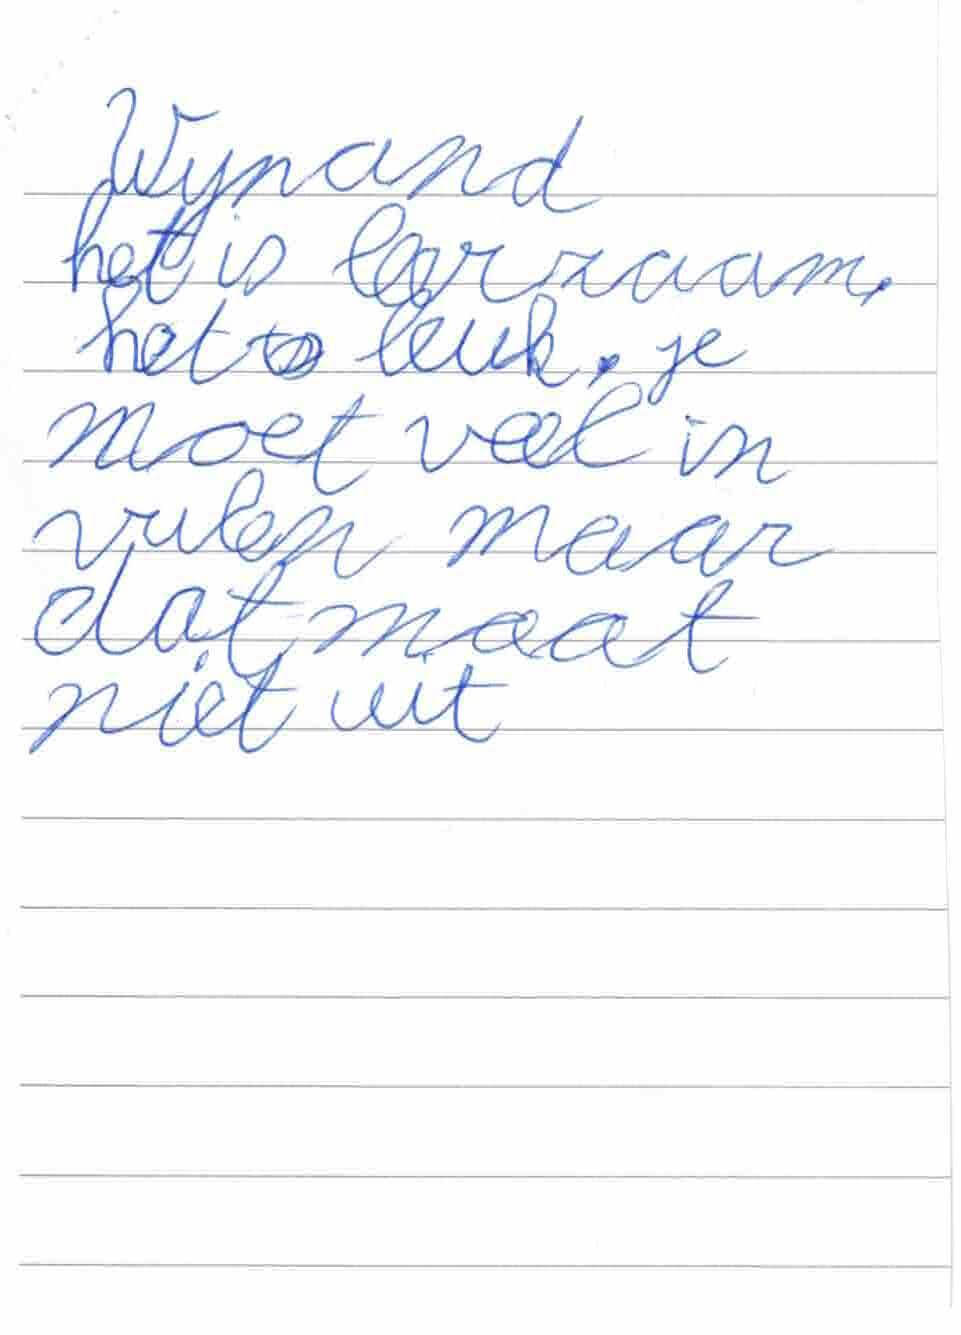 Wijnand
het is leerzaam.
het is leuk. je
moet veel in
vulen maar
dat maat
niet uit